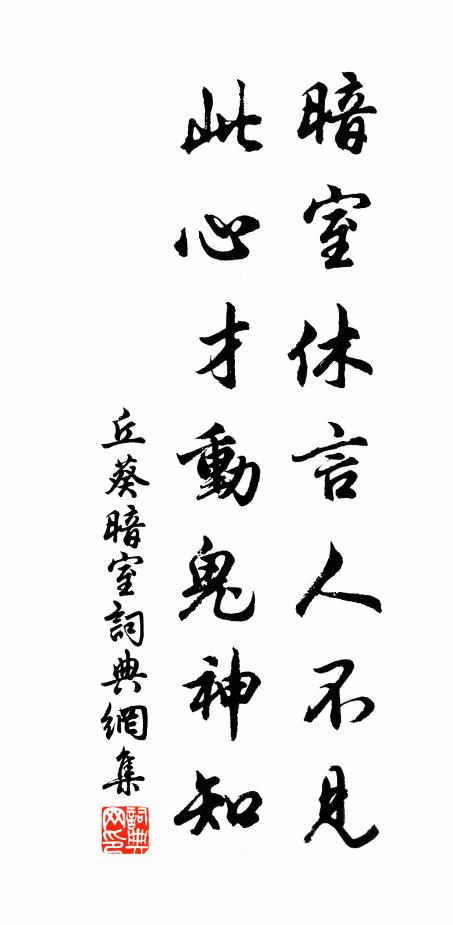 暗室休言人不見
此心才動鬼神知
丘葵暗室詞典網集
詞典
网印